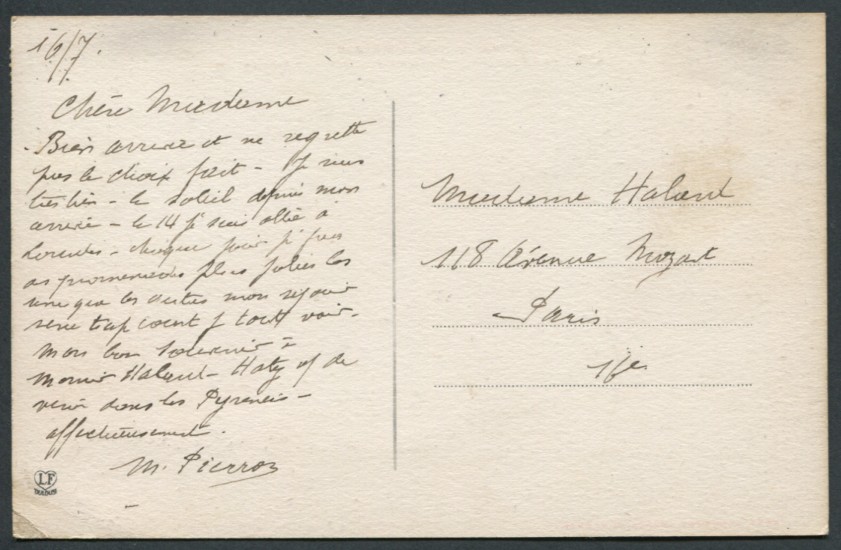 16/7.
Chère Madame
Bien arrivée et ne regrette
pas le choix fait - Je suis
très bien - le soleil depuis mon
arrivée - le 14 je suis allée à
Lourdes - chaque jour je fais
des promenades plus jolies les
unes que les autres mon séjour
sera trop court pr tout voir -
Mon bon souvenir à
Monsieur Halard - Hatez vs de
venir dans les Pyrénées -
affectueusement.
M. Pierron
LF
Madame Halard
118 Avenue Mozart
Paris
16e